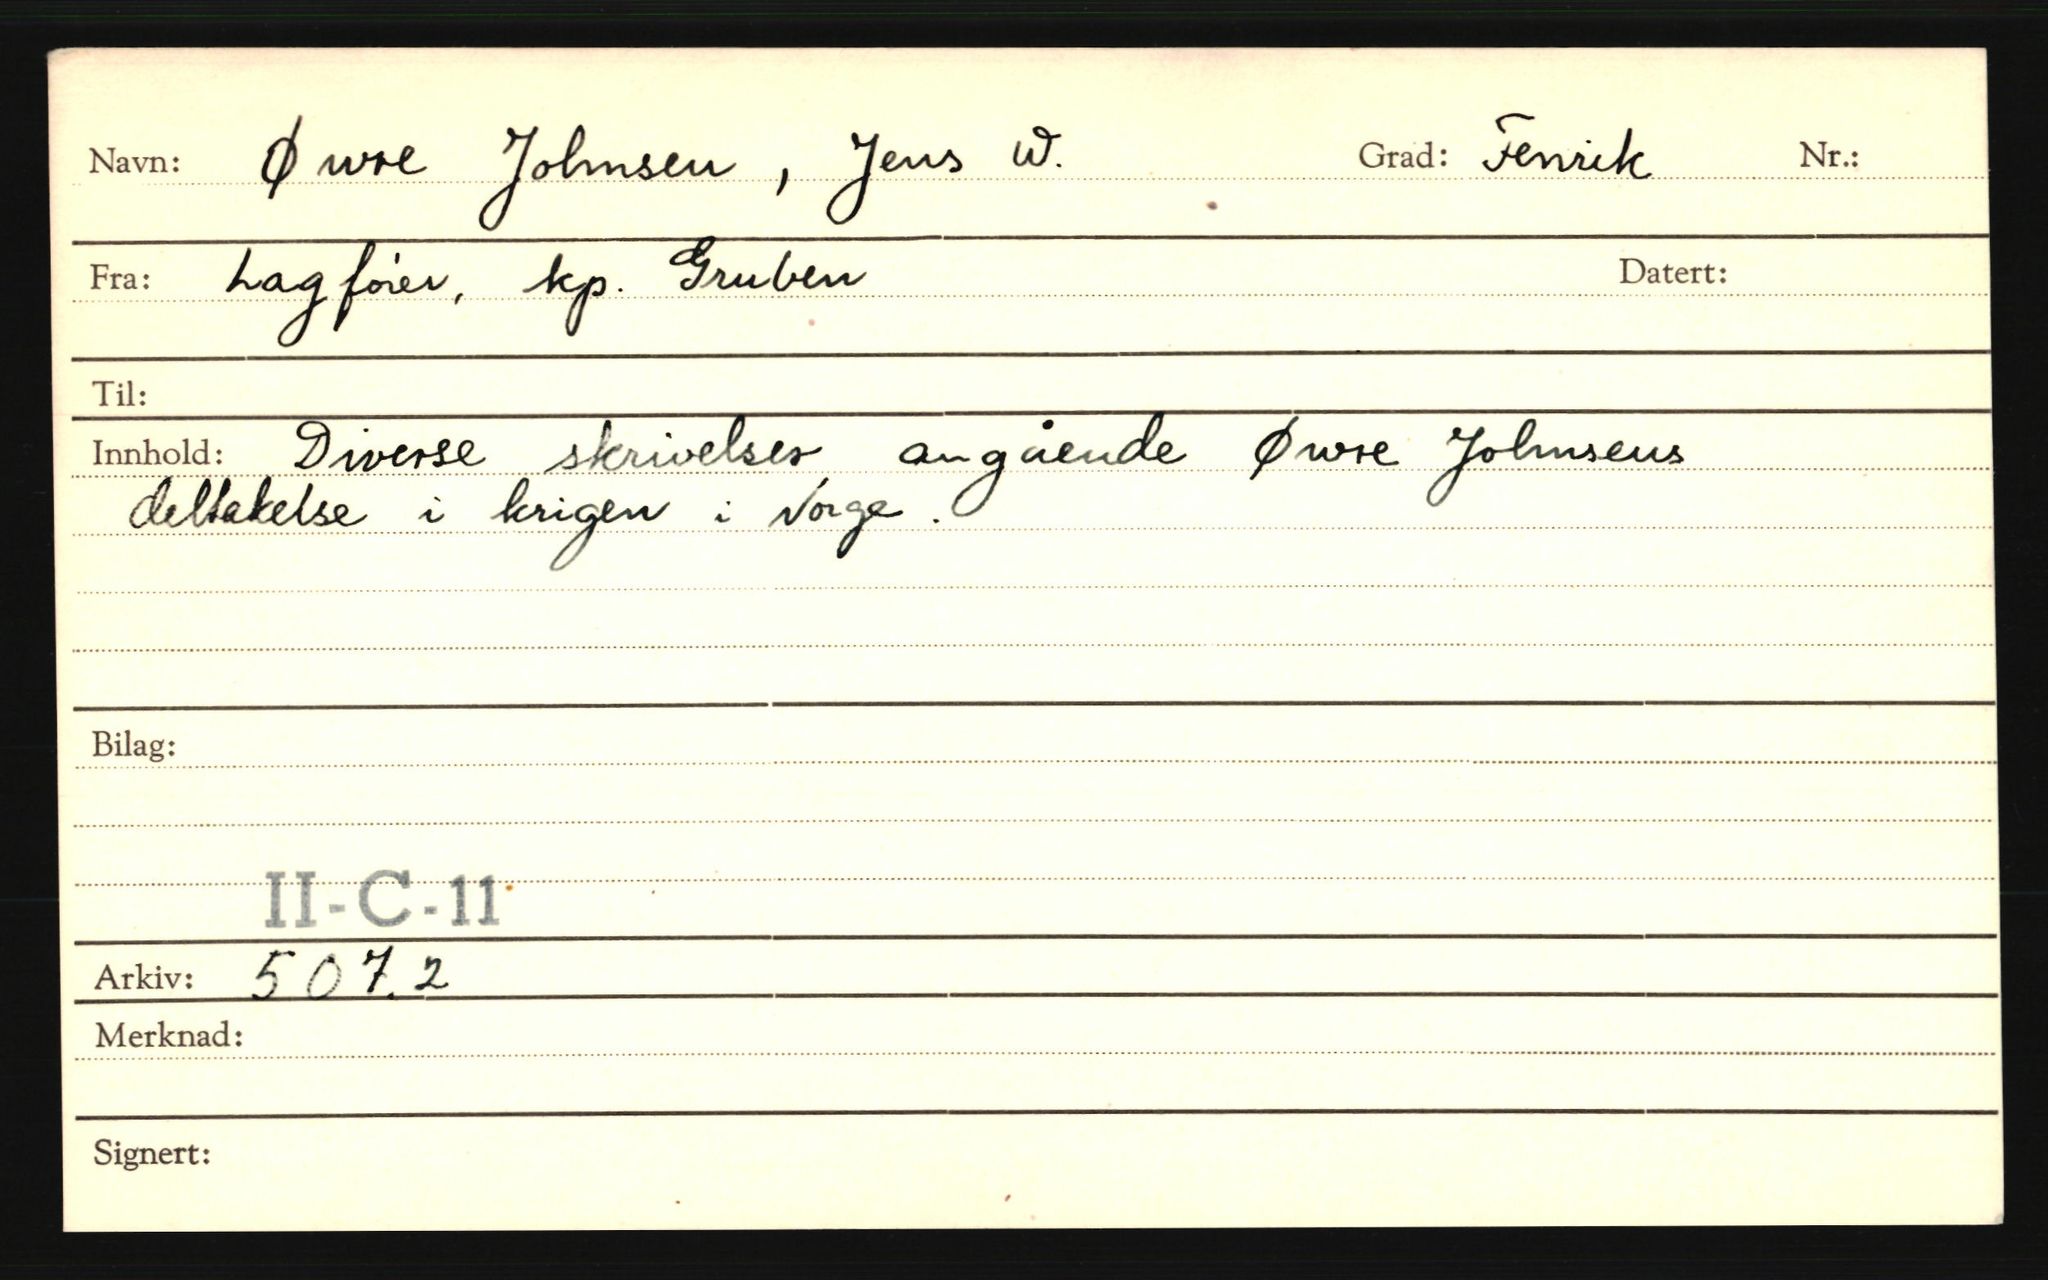 Navn: Øwre Johnsen, Jens W. Grad: Fenrik Nr.:
Fra: Lagfører, kp. Gruben Datert:
Til:
Innhold: Diverse skrivelser angående Øwre Johnsens
deltakelse i krigen i Norge.
Bilag:
II-C-11
Arkiv: 507.2
Merknad:
Signert: